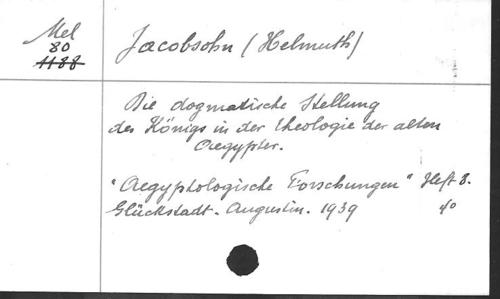 Mel
80
1188
Jacobsohn (Helmuth)
Die dogmatische Stellung
des Königs in der Theologie der alten
Aegypter.
"Aegyptologische Forschungen" Heft 8.
Glückstadt. Augustin. 1939 4°